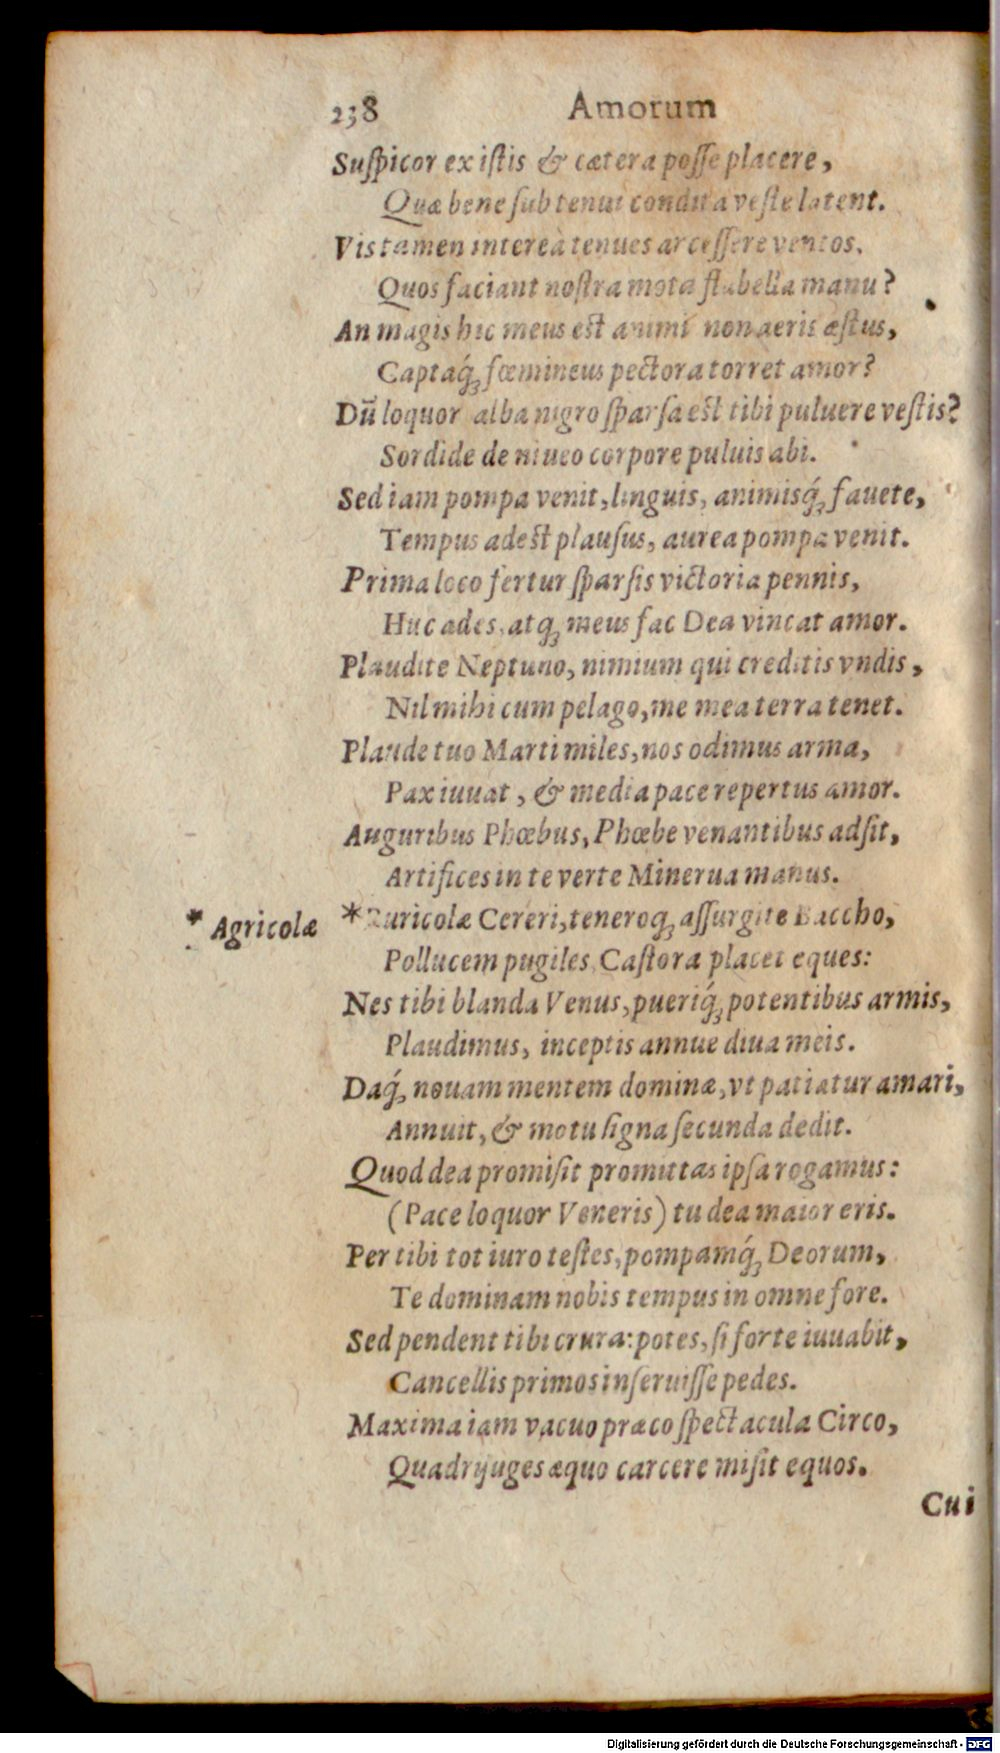 238 Amorum
Suſpicor ex iſtis & cætera poſſe placere,
Quæ bene ſub tenui condita veſte latent.
Vis tamen intereà tenues arceſſere ventos,
Quos faciant noſtra mota flabella manu?
An magis hic meus eſt animi non aeris æſtus,
Captaq́ꝫ fœmineus pectora torret amor?
Dū loquor alba nigro ſparſa eſt tibi puluere veſtis?
Sordide de niueo corpore puluis abi.
Sed iam pompa venit, linguis, animisq́ꝫ fauete,
Tempus adeſt plauſus, aurea pompa venit.
Prima loco fertur ſparſis victoria pennis,
Huc ades, atqꝫ meus fac Dea vincat amor.
Plaudite Neptuno, nimium qui creditis vndis,
Nil mihi cum pelago, me mea terra tenet.
Plaude tuo Marti miles, nos odimus arma,
Pax iuuat, & media pace repertus amor.
Auguribus Phœbus, Phœbe venantibus adſit,
Artifices in te verte Minerua manus.
* Agricolæ *Ruricolæ Cereri, teneroqꝫ aſſurgite Baccho,
Pollucem pugiles, Caſtora placet eques:
Nes tibi blanda Venus, pueriq́ꝫ potentibus armis,
Plaudimus, inceptis annue diua meis.
Daq́ꝫ nouam mentem dominæ, vt patiatur amari,
Annuit, & motu ſigna ſecunda dedit.
Quod dea promiſit promittas ipſa rogamus:
(Pace loquor Veneris) tu dea maior eris.
Per tibi tot iuro teſtes, pompamq́ꝫ Deorum,
Te dominam nobis tempus in omne fore.
Sed pendent tibi crura: potes, ſi forte iuuabit,
Cancellis primos inſeruiſſe pedes.
Maxima iam vacuo præco ſpectacula Circo,
Quadrijuges æquo carcere miſit equos.
Cui
Digitalisierung gefördert durch die Deutsche Forschungsgemeinschaft - DFG